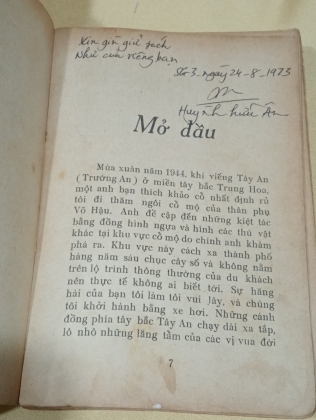 Xin gìn giữ sách
Như của riêng bạn
ngày 24-8-1973
Huỳnh hữu Ân
Mở đầu
Mùa xuân năm 1944, khi viếng Tây An
( Trường An ) ở miền tây bắc Trung Hoa,
một anh bạn thích khảo cổ nhất định rủ
tôi đi thăm ngôi cổ mộ của thân phụ
Võ Hậu. Anh đề cập đến những kiệt tác
bằng đồng hình ngựa và hình các thú vật
khác tại khu vực cổ mộ do chính anh khám
phá ra. Khu vực này cách xa thành phố
hàng năm sáu chục cây số và không nằm
trên lộ trình thông thường của du khách
nên thực tế không ai biết tới. Sự hăng
hái của bạn tôi làm tôi vui lây, và chúng
tôi khởi hành bằng xe hơi. Những cánh
đồng phía tây bắc Tây An chạy dài xa tắp,
lô nhô những lăng tẩm của các vị vua đời
7